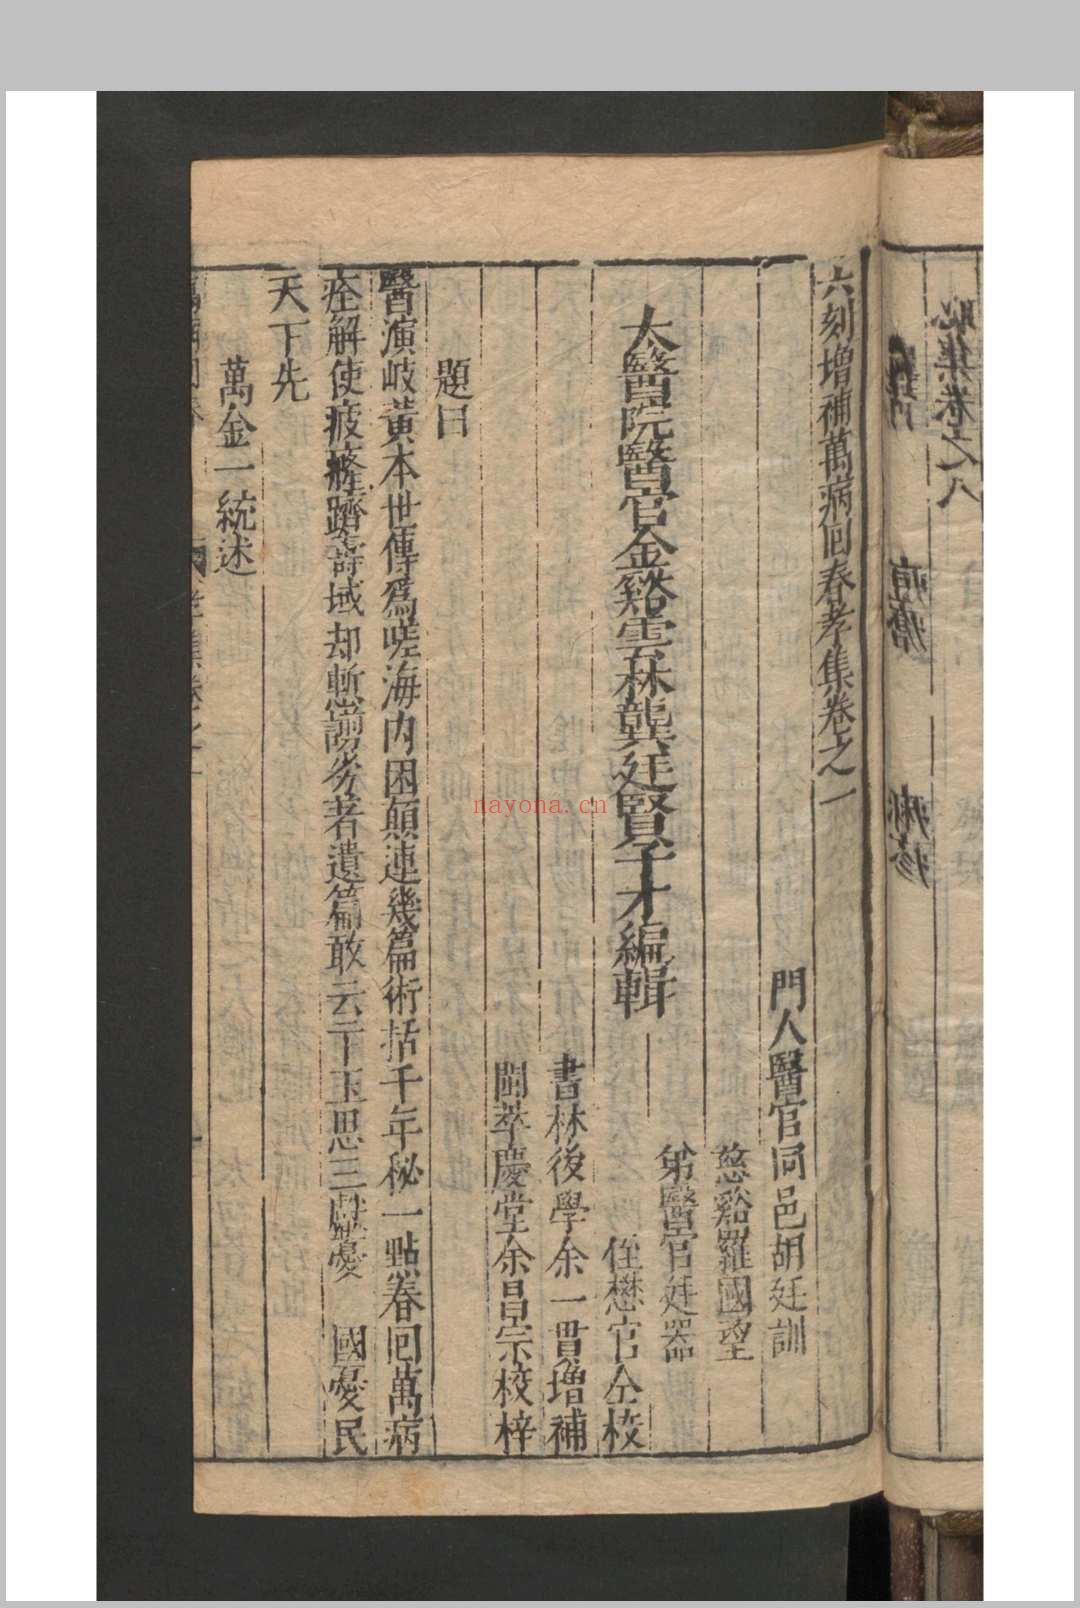 恥集卷之八
痘瘡
痳疹
六刻增補萬病回春孝集卷之一
門人醫官同邑胡廷訓
慈谿羅國望
太醫院醫官金谿雲林龔廷賢子才編輯
弟醫官廷器
侄懋官仝校
書林後學余一貫增補
閩萃慶堂余昌宗校梓
題曰
醫演岐黃本世傳爲嗟海内困顛連幾篇術括千年秘一點春回萬病
痊解使疲癃躋壽域却慙謭劣著遺篇敢云干玉思三獻憂國憂民
天下先
萬金一統述
nayona.cn